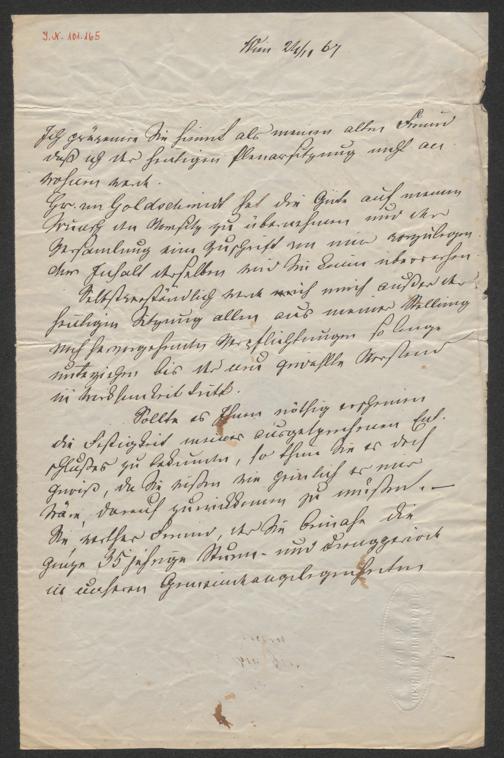 J. N. 101.165
Wien 24/11 67
Ich Sie hiemit als meinen alten Freund
daß ich der heutigen Plenarsitzung nicht an-
wohnen werde.
Hr. von Goldschmidt hat die Güte auf meinen
Wunsch den Vorsitz zu übernehmen und der
Versamlung eine Zuschrift von mir vorzulegen
der Inhalt derselben wird Sie kaum überraschen.
Selbstverständlich werde mich außer der
heutigen Sitzung allen aus meiner Stellung
hervorgehenden Verpflichtungen so lange
unterziehen bis der neu gewählte Vorstand
in Wirksamkeit tritt.
Sollte es Ihnen nöthig erscheinen
die Festigkeit meines ausgesprochenen Ent-
schlußes zu betonen, so thun Sie es doch
gewiß, da Sie wißen wie peinlich es mir
wäre, darauf zurückkommen zu müßen. –
Sie, werther Freund, der Sie beinahe die
ganze 35 jährige Sturm- und Drangperiode
in unseren Gemeindeangelegenheiten